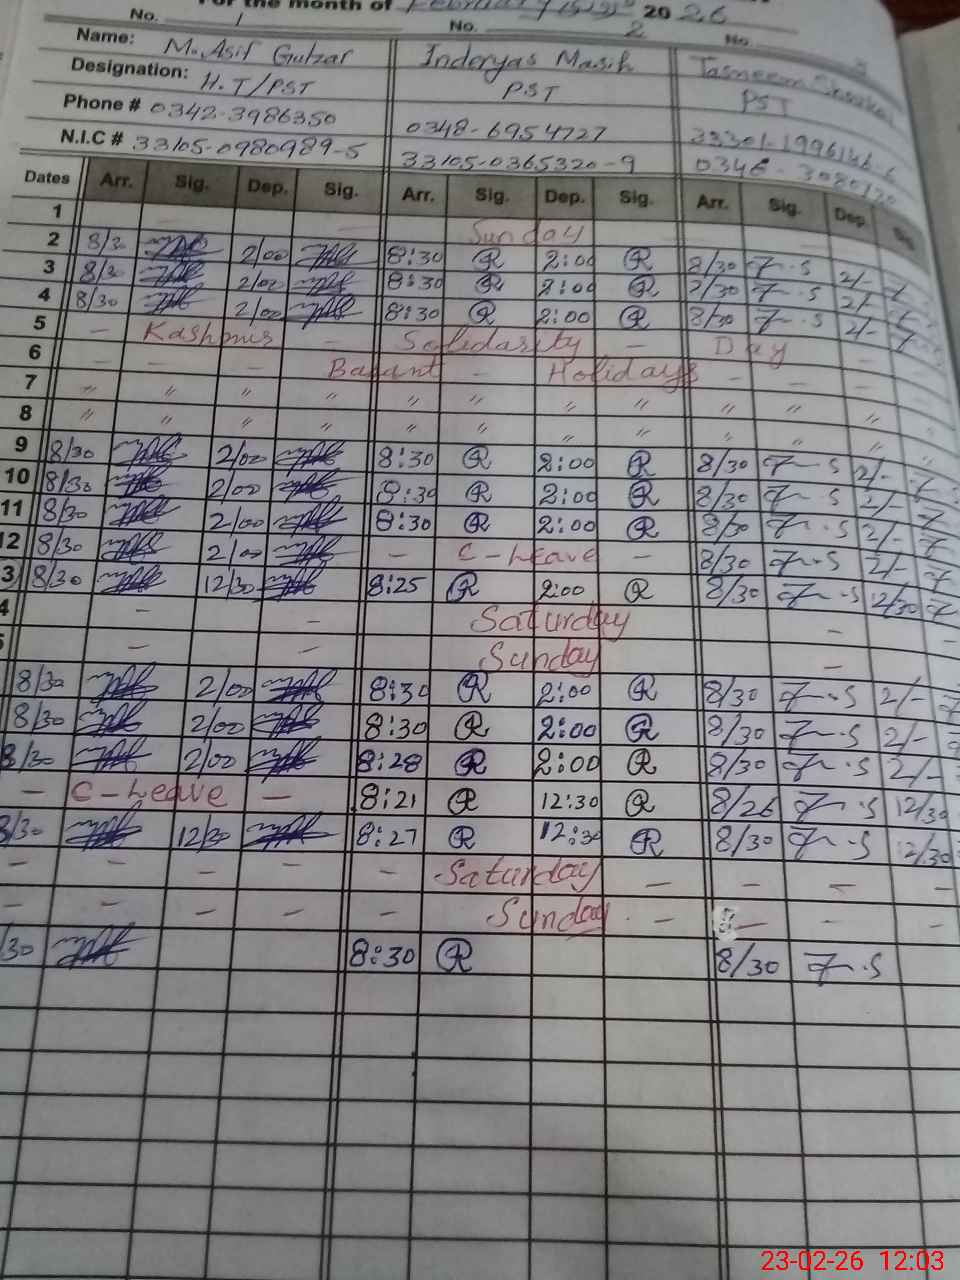 For the month of February 2026
No. 1 No. 2 No. 3
Name: M. Asif Gulzar Inderyas Masih Tasneem
Designation: H.T/PST PST PST
Phone # 0342-3986350 0348-6954727
N.I.C # 33105-0980989-5 33105-0365320-9
Dates Arr. Sig. Dep. Sig. Arr. Sig. Dep. Sig. Arr. Sig. Dep. Sig.
1 — — Sunday
2 8/30 2/00 8:30 R 2:00 R 8/30 T.S 2/-
3 8/30 2/00 8:30 R 2:00 R 7/30 T.S 2/-
4 8/30 2/00 8:30 R 2:00 R 8/30 T.S 2/-
5 — Kashmir — Solidarity — Day
6 — — — Basant — Holidays — — —
7 〃 〃 〃 〃 〃 〃 〃 〃 〃 〃 〃
8 〃 〃 〃 〃 〃 〃 〃 〃 〃 〃 〃 〃
9 8/30 2/00 8:30 R 2:00 R 8/30 T.S 2/-
10 8/30 2/00 8:30 R 2:00 R 8/30 T.S 2/-
11 8/30 2/00 8:30 R 2:00 R 8/30 T.S 2/-
12 8/30 2/00 — C-Leave — 8/30 T.S 2/-
3 8/30 12/30 8:25 R 2:00 R 8/30 T.S 12/30
4 — — Saturday —
— — Sunday —
8/30 2/00 8:30 R 2:00 R 8/30 T.S 2/-
8/30 2/00 8:30 R 2:00 R 8/30 T.S 2/-
8/30 2/00 8:28 R 2:00 R 8/30 T.S 2/-
— C-Leave — 8:21 R 12:30 R 8/26 T.S 12/30
8/30 12/30 8:27 R 12:30 R 8/30 T.S 12/30
— — — — — Saturday — — — —
— — — — — Sunday — — — —
/30 8:30 R 8/30 T.S
23-02-26 12:03